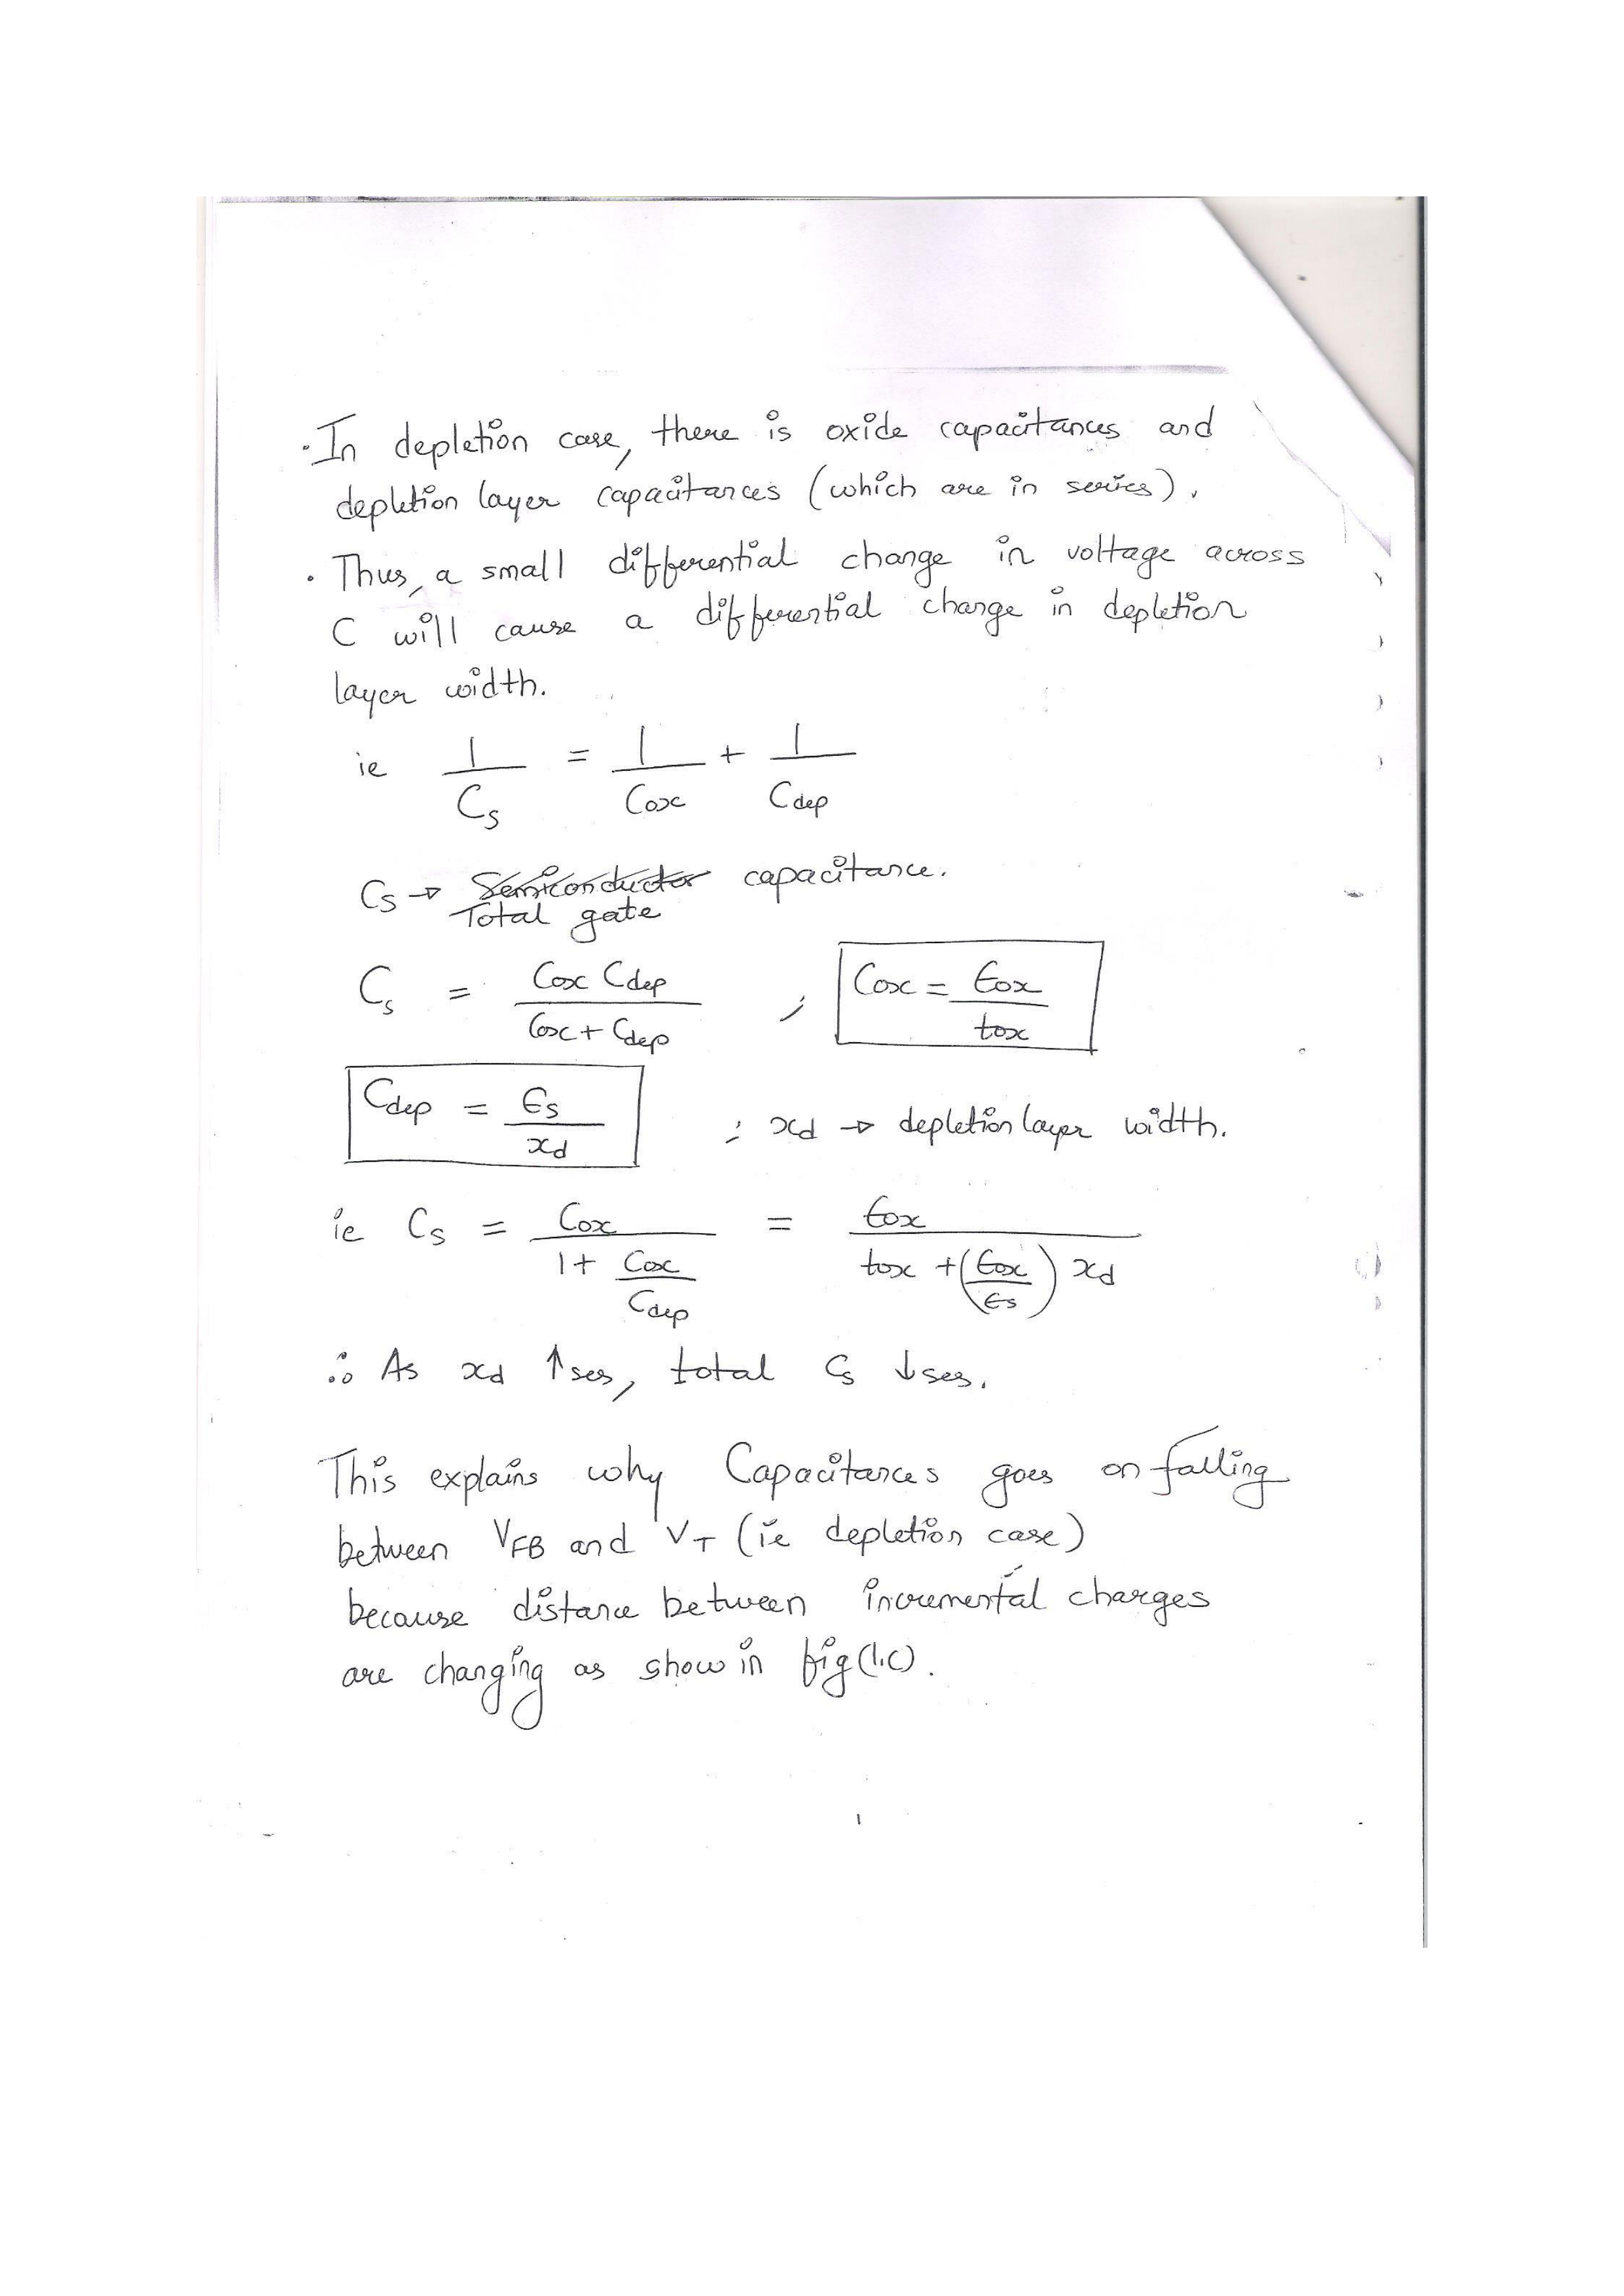 · In depletion case, there is oxide capacitances and
depletion layer capacitances (which are in series).
· Thus, a small differential change in voltage across
C will cause a differential change in depletion
layer width.
ie 1/Cs = 1/Cox + 1/Cdep
Cs → ~~Semiconductor~~ capacitance.
Total gate
Cs = Cox Cdep / (Cox + Cdep) ; Cox = ϵox / tox
Cdep = ϵs / xd ; xd → depletion layer width.
ie Cs = Cox / (1 + Cox/Cdep) = ϵox / (tox + (ϵox/ϵs) xd)
∴ As xd ↑ses, total Cs ↓ses.
This explains why Capacitances goes on falling
between VFB and VT (ie depletion case)
because distance between incremental charges
are changing as show in fig (1.c).